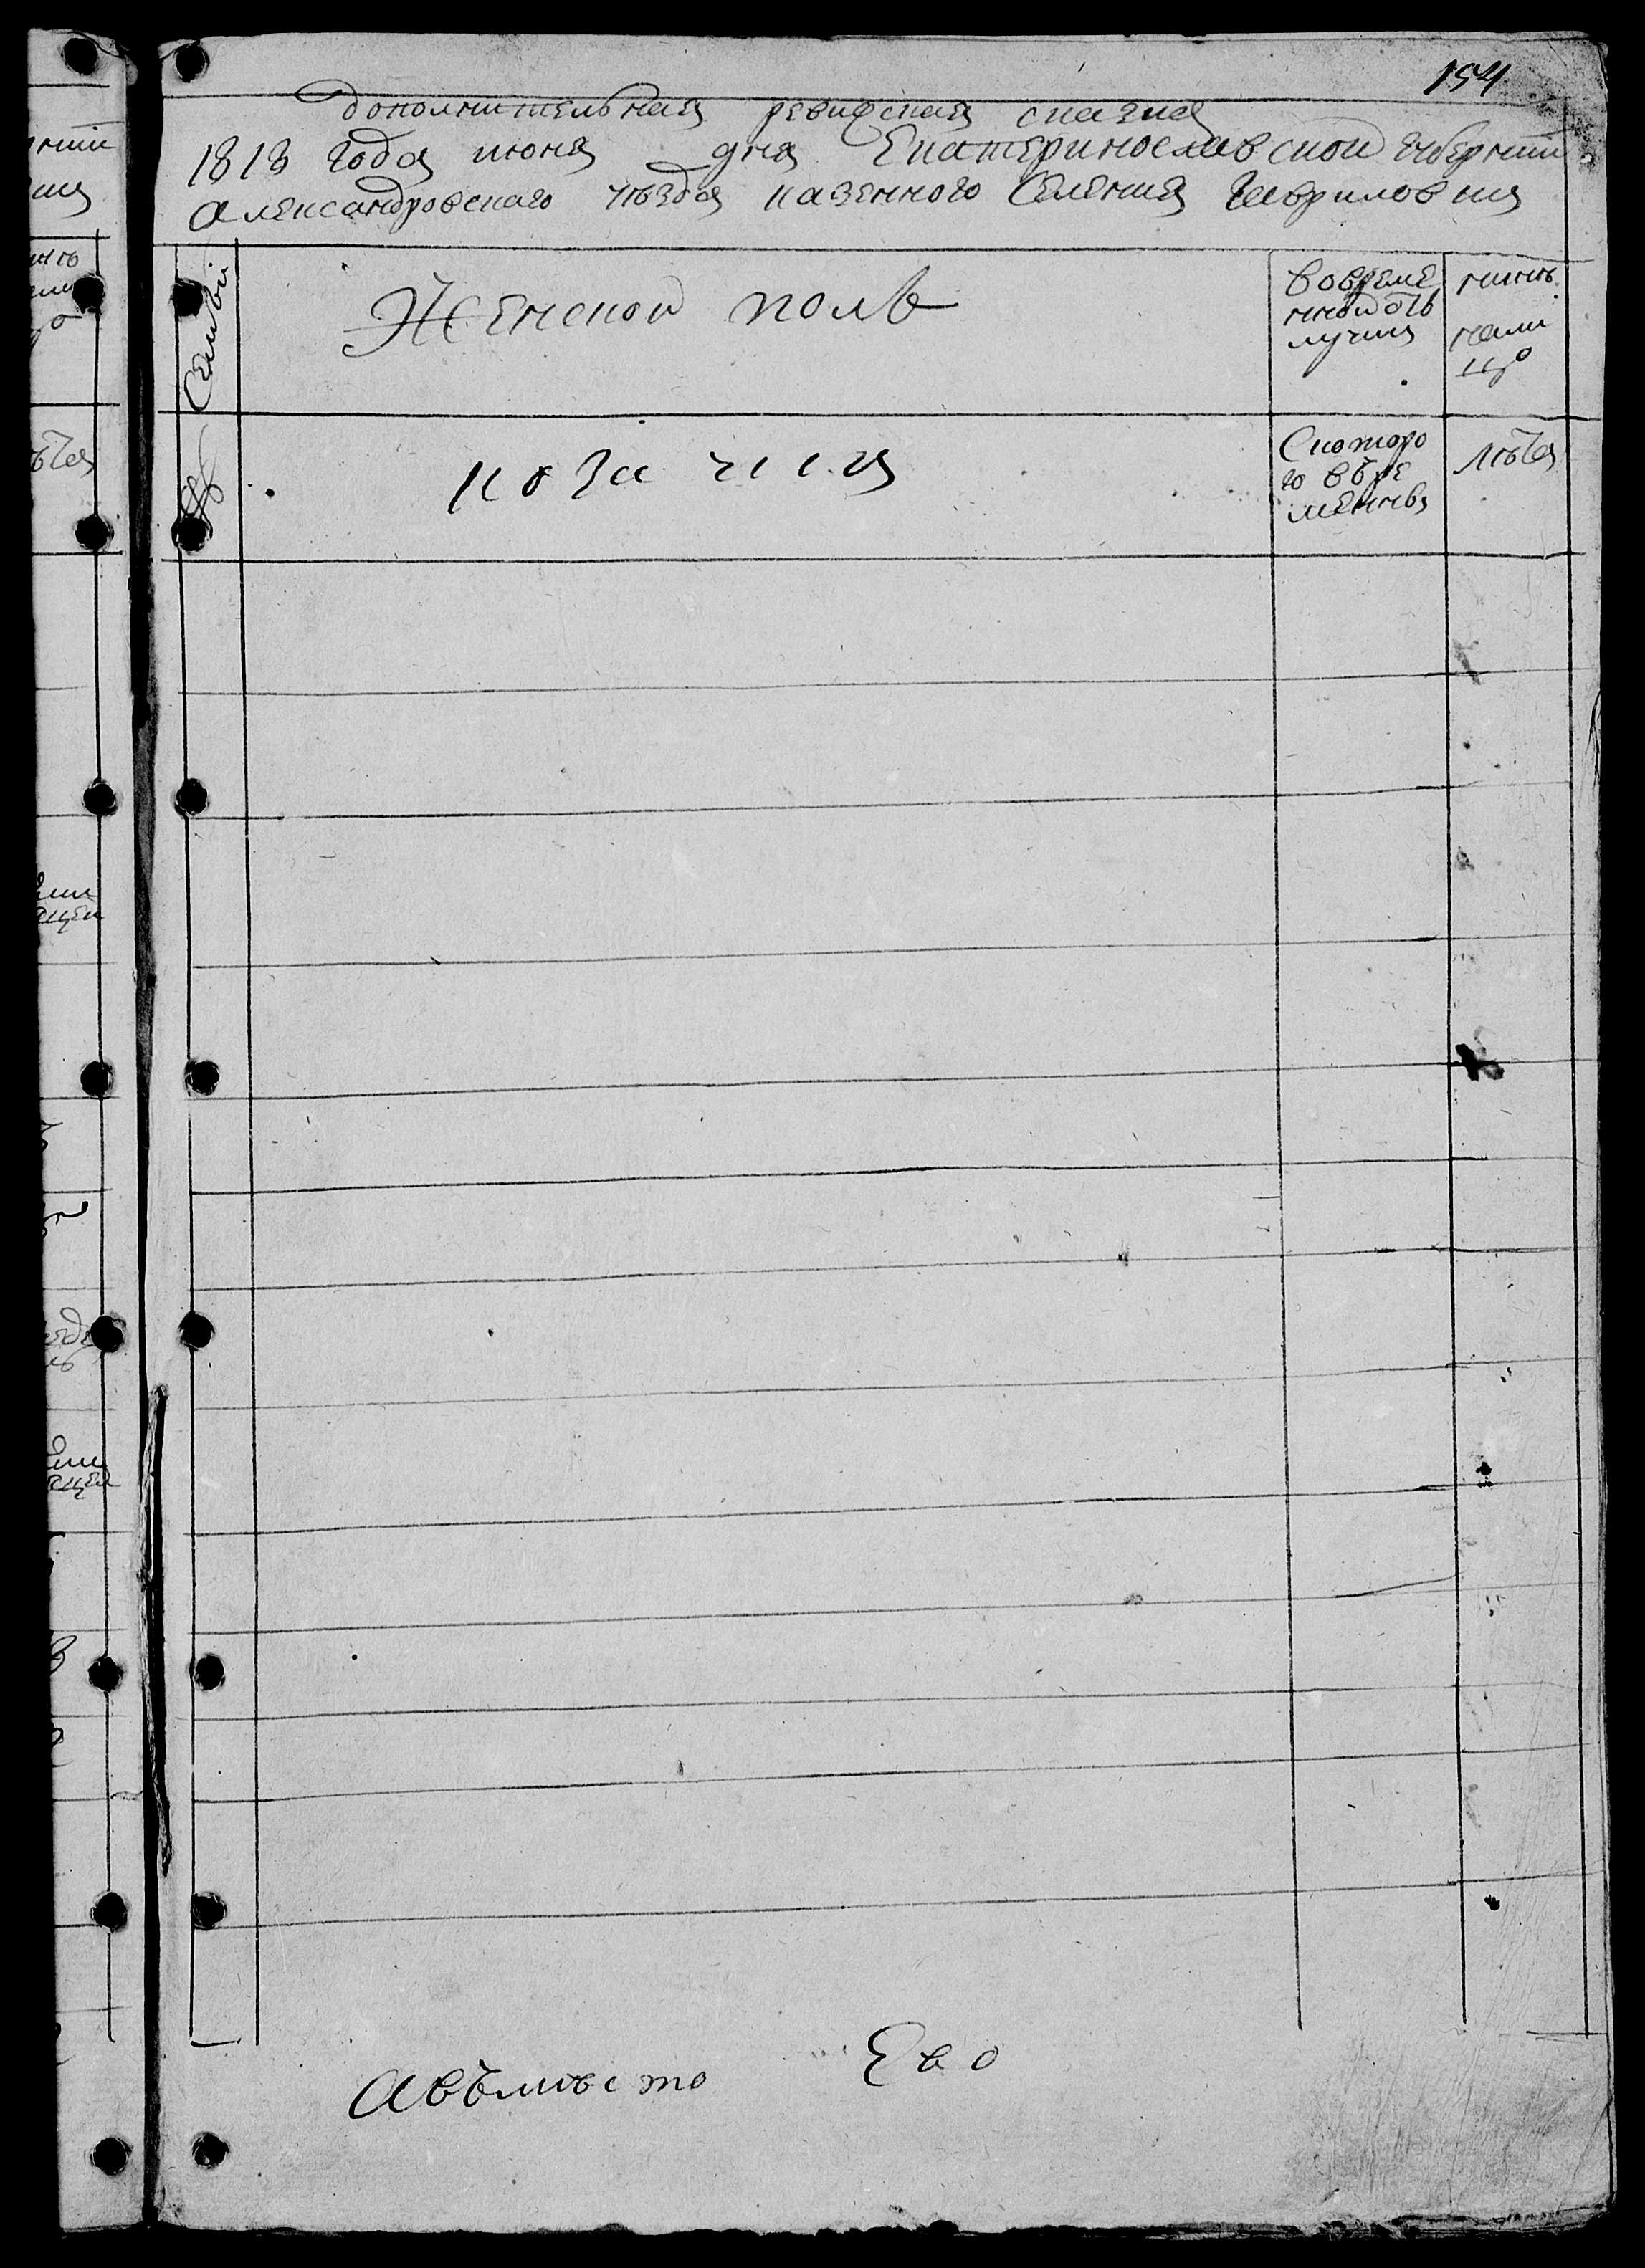 154
дополнительная ревизская сказка
1818 года июня дня Екатеринославской губернии
Александровскаго уѣзда казенного Селения Гавриловки
Семьи
Женской полъ
Вовреме
нной отъ
лучки
нинѣ
нали
цо
№
козачия
Скоторо
го вѣре
мени
лѣта
Авъмѣсто Ево